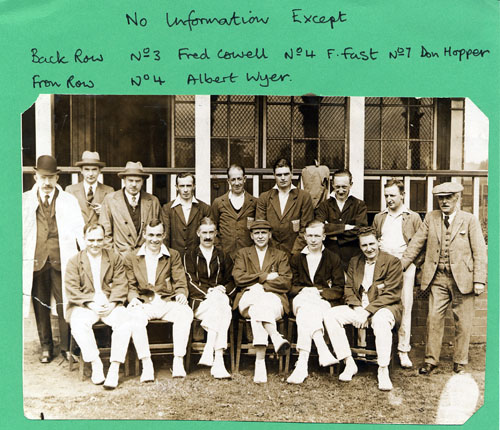 No Information Except
Back Row Nº3 Fred Cowell Nº4 F. Fast Nº7 Don Hopper
Fron Row Nº4 Albert Wyer.